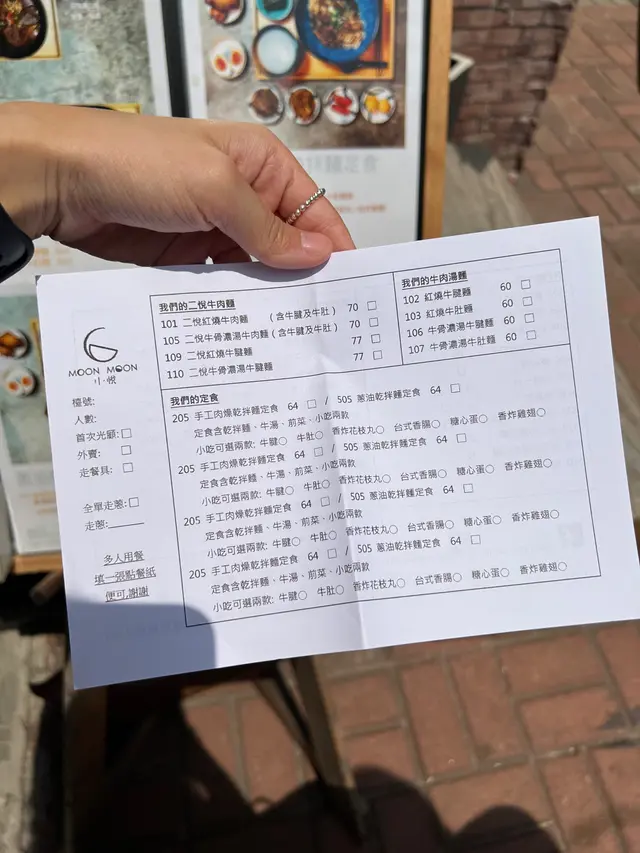 MOON MOON
小·悅
檯號:
人數:
首次光顧:□
外賣: □
走餐具: □
全單走蔥:□
走蔥:______
多人用餐
填一張點餐紙
便可,謝謝
我們的二悅牛肉麵
101 二悅紅燒牛肉麵 (含牛腱及牛肚) 70 □
105 二悅牛骨濃湯牛肉麵 (含牛腱及牛肚) 70 □
109 二悅紅燒牛腱麵 77 □
110 二悅牛骨濃湯牛腱麵 77 □
我們的牛肉湯麵
102 紅燒牛腱麵 60 □
103 紅燒牛肚麵 60 □
106 牛骨濃湯牛腱麵 60 □
107 牛骨濃湯牛肚麵 60 □
我們的定食
205 手工肉燥乾拌麵定食 64 □ / 505 蔥油乾拌麵定食 64 □
定食含乾拌麵、牛湯、前菜、小吃兩款
小吃可選兩款: 牛腱○ 牛肚○ 香炸花枝丸○ 台式香腸○ 糖心蛋○ 香炸雞翅○
205 手工肉燥乾拌麵定食 64 □ / 505 蔥油乾拌麵定食 64 □
定食含乾拌麵、牛湯、前菜、小吃兩款
小吃可選兩款: 牛腱○ 牛肚○ 香炸花枝丸○ 台式香腸○ 糖心蛋○ 香炸雞翅○
205 手工肉燥乾拌麵定食 64 □ / 505 蔥油乾拌麵定食 64 □
定食含乾拌麵、牛湯、前菜、小吃兩款
小吃可選兩款: 牛腱○ 牛肚○ 香炸花枝丸○ 台式香腸○ 糖心蛋○ 香炸雞翅○
205 手工肉燥乾拌麵定食 64 □ / 505 蔥油乾拌麵定食 64 □
定食含乾拌麵、牛湯、前菜、小吃兩款
小吃可選兩款: 牛腱○ 牛肚○ 香炸花枝丸○ 台式香腸○ 糖心蛋○ 香炸雞翅○